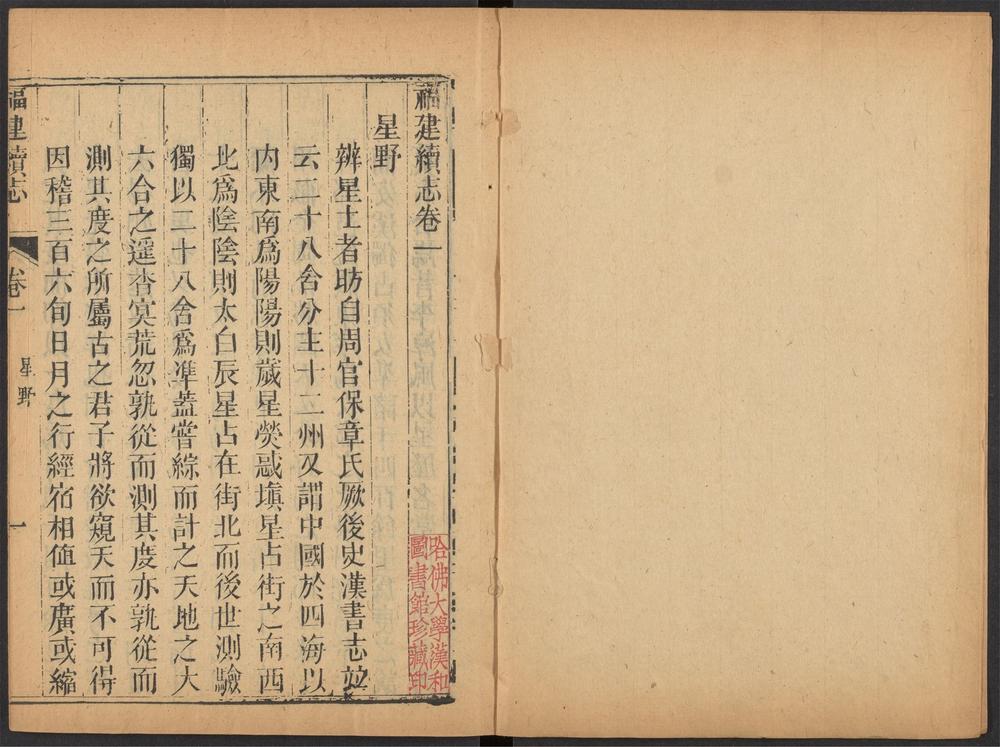 福建續志卷一
星野
辨星土者昉自周官保章氏厥後史漢書志竝
云二十八舍分主十二州又謂中國於四海以
內東南爲陽陽則歲星熒惑塡星占街之南西
北爲陰陰則太白辰星占在街北而後世測驗
獨以二十八舍爲準蓋嘗綜而計之天地之大
六合之遥杳冥荒忽孰從而測其度亦孰從而
測其度之所屬古之君子將欲窺天而不可得
因稽三百六旬日月之行經宿相值或廣或縮
福建續志
卷一
星野
一
哈佛大學漢和
圖書館珍藏印